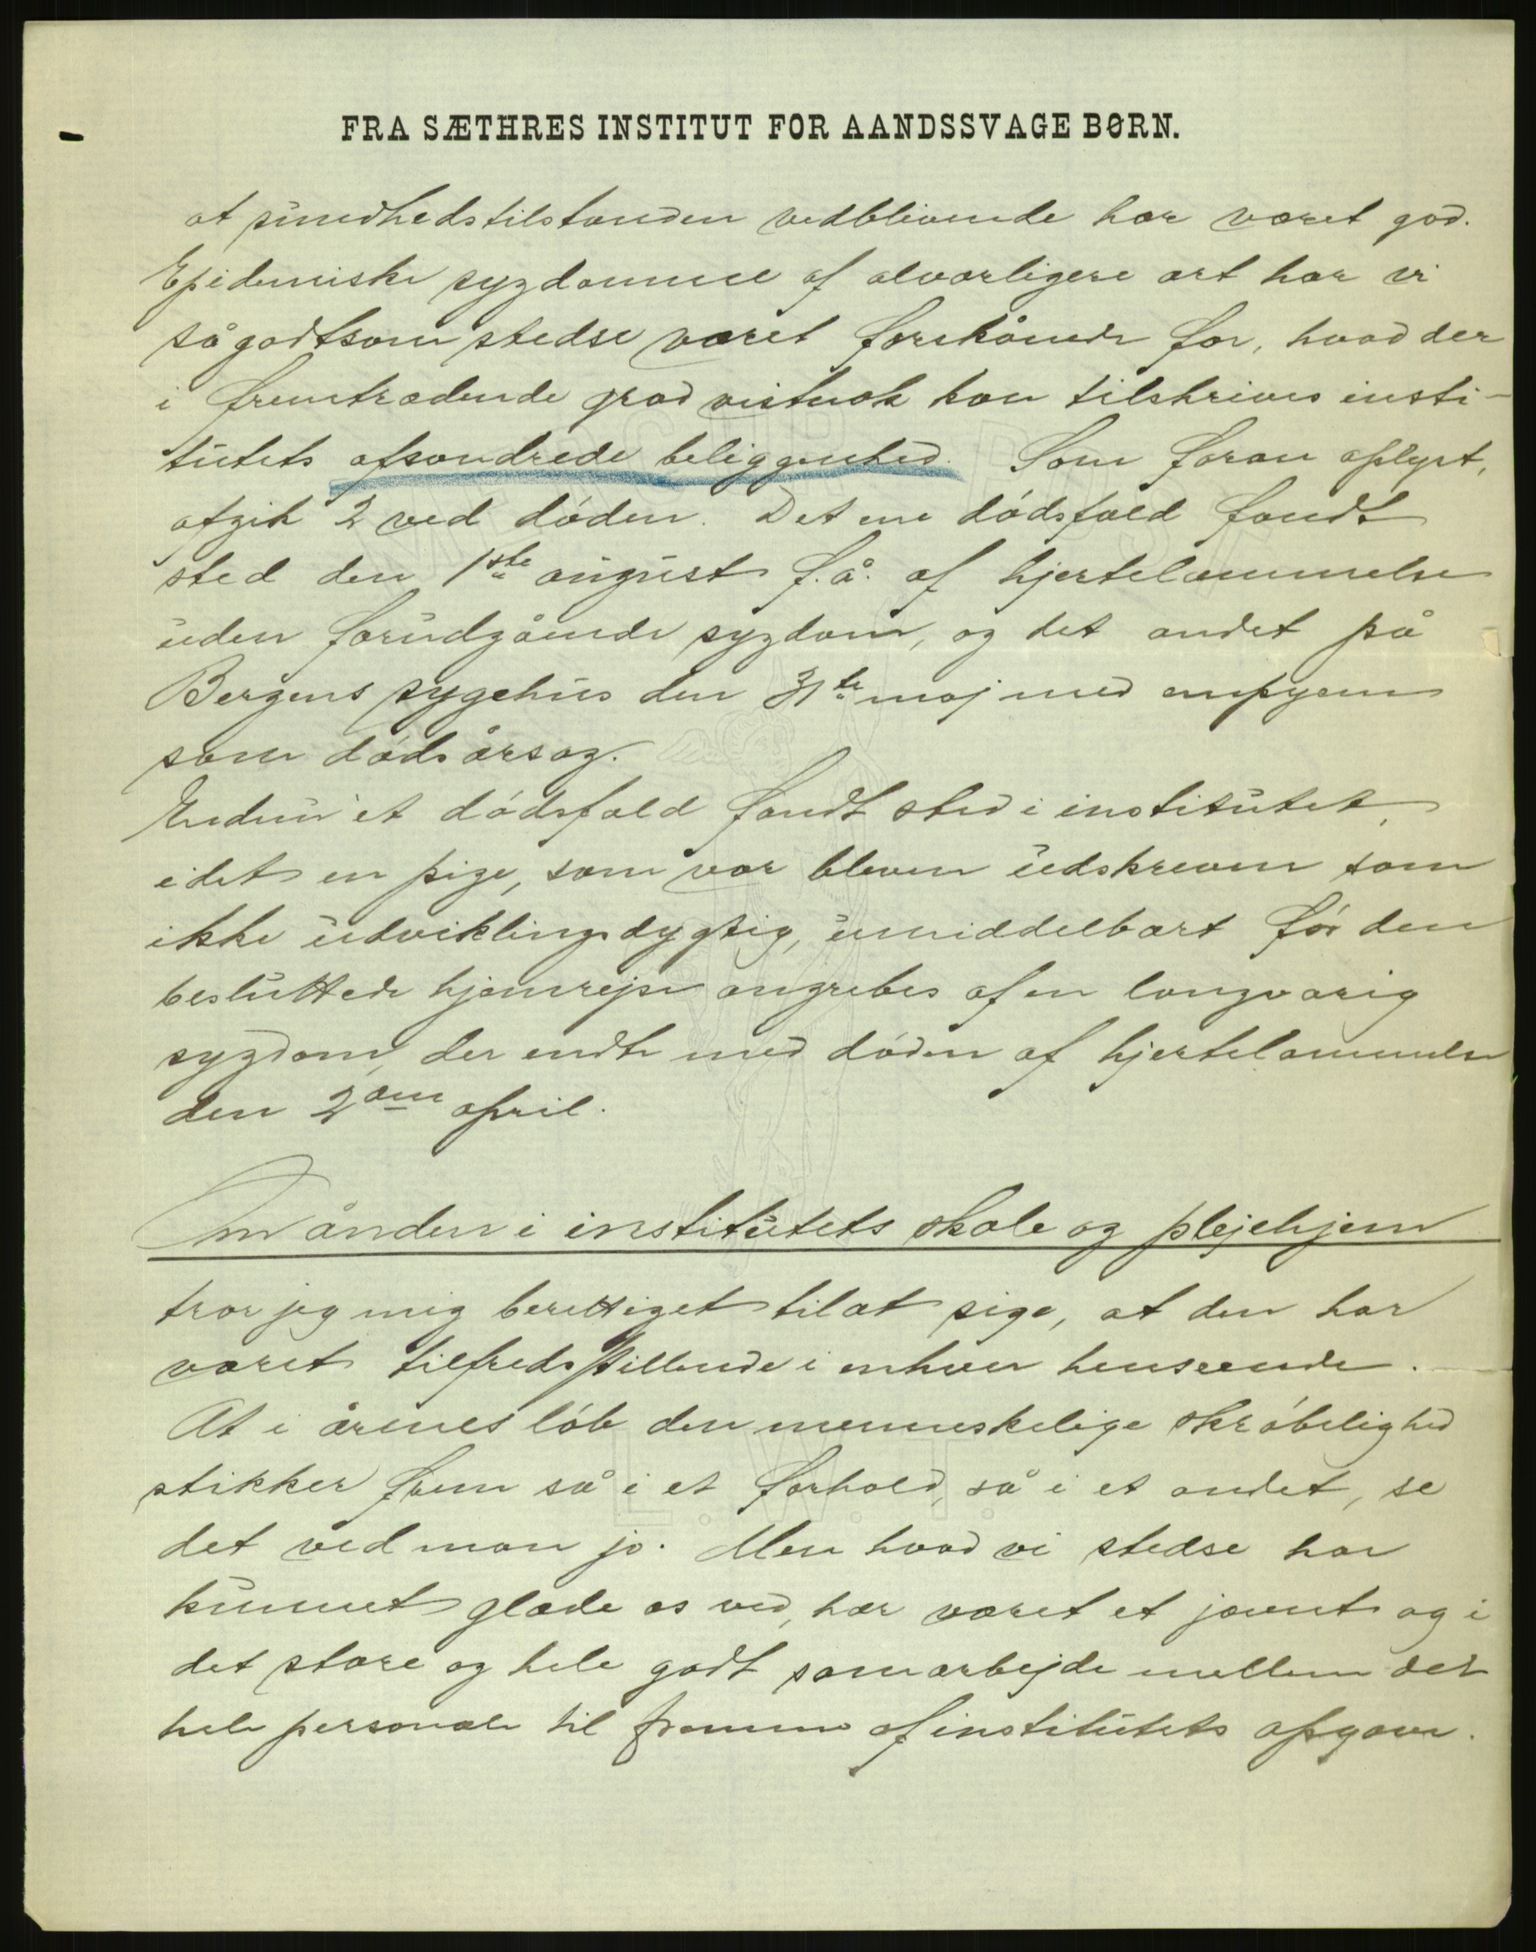 FRA SÆTHRES INSTITUT FOR AANDSSVAGE BØRN.
at sundhedstilstanden vedblivende har været god.
Epidemiske sygdomme af alvorligere art har vi
sågodtsom stedse været forskånede for, hvad der
i fremtrædende grad vistnok kan tilskrives insti-
tutets afsondrede beliggenhed. Som foran oplyst,
afgik 2 ved døden. Det ene dødsfald fandt
sted den 1ste august f.å. af hjertelammelse
uden forudgående sygdom, og det andet på
Bergens sygehus den 31te maj med empyem
som dødsårsag.
Endnu et dødsfald fandt sted i institutet,
idet en pige, som var bleven udskreven som
ikke udviklingsdygtig, umiddelbart før den
besluttede hjemrejse angrebes af en langvarig
sygdom, der endte med døden af hjertelammelse
den 2den april.
Om ånden i institutets skole og plejehjem
tror jeg mig berettiget til at sige, at den har
været tilfredsstillende i enhver henseende.
At i årenes løb den menneskelige skrøbelighed
stikker frem så i et forhold, så i et andet, se
det ved man jo. Men hvad vi stedse har
kunnet glæde os ved, har været et jævnt og i
det store og hele godt samarbejde mellem det
hele personale til fremme af institutets opgave.
L.W.T.